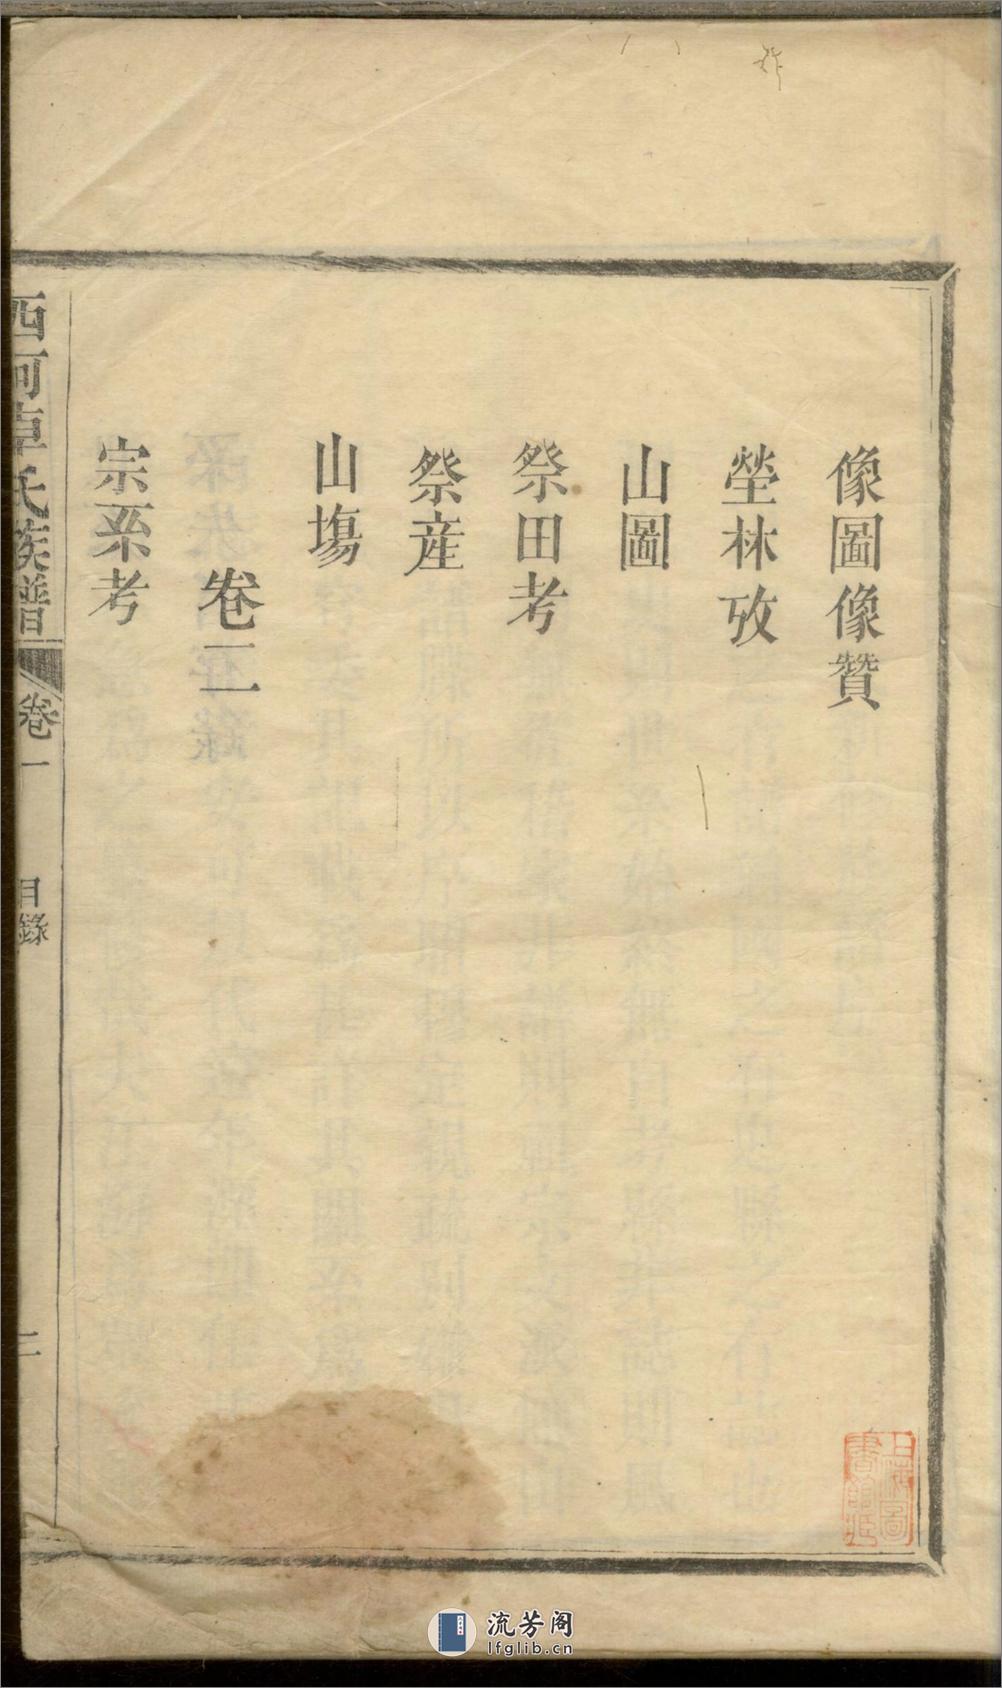 像圖像贊
塋林攷
山圖
祭田考
祭産
山塲
卷二
宗系考
西河卓氏族譜
卷一
目錄
二
上海圖
書館藏
流芳阁
lfglib.cn